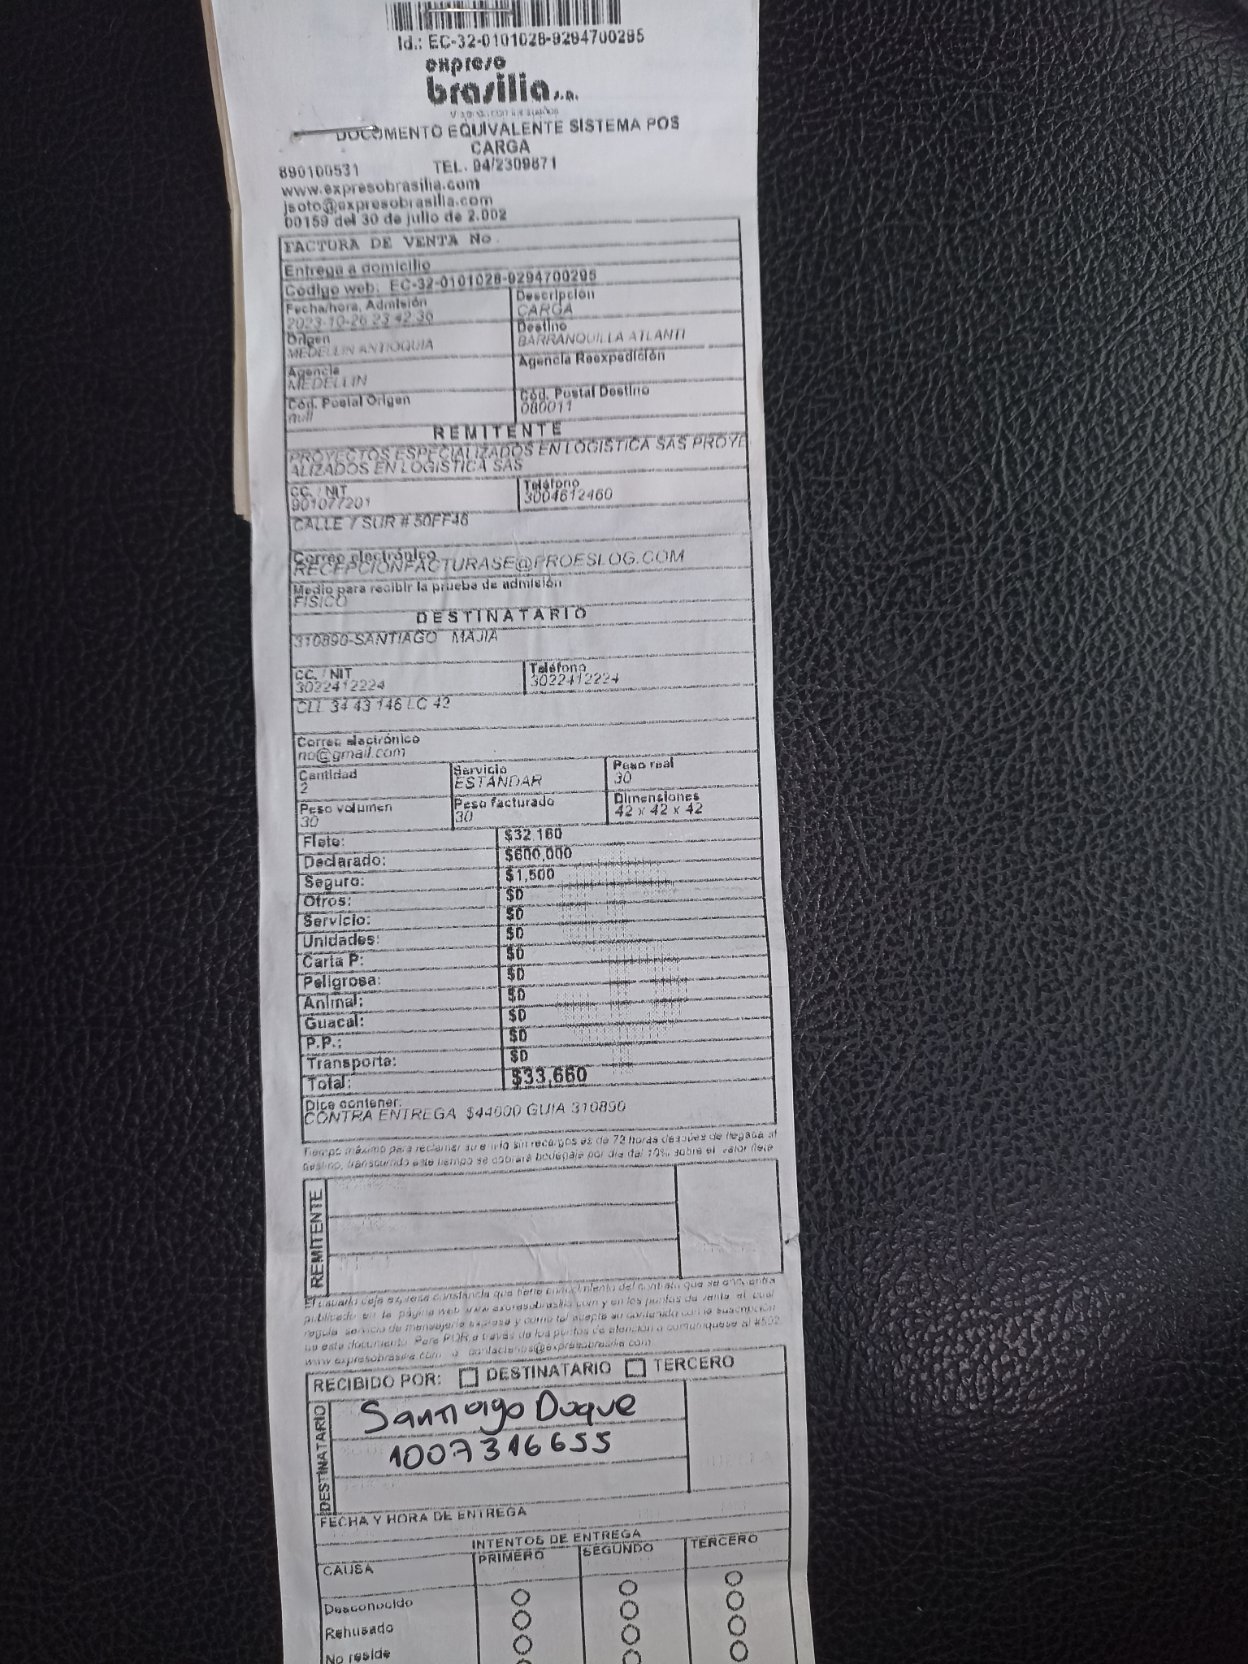 Id.: EC-32-0101028-9294700295
expreso
brasilia s.a.
DOCUMENTO EQUIVALENTE SISTEMA POS
CARGA
890100531 TEL. 94/2309871
www.expresobrasilia.com
jsoto@expresobrasilia.com
00159 del 30 de julio de 2.002
FACTURA DE VENTA No.
Entrega a domicilio
Código web: EC-32-0101028-9294700295
Fecha/hora, Admisión Descripción
2023-10-26 23 42 30 CARGA
Origen Destino
MEDELLIN ANTIOQUIA BARRANQUILLA ATLANTI
Agencia Agencia Reexpedición
MEDELLIN
Cód. Postal Origen Cód. Postal Destino
null 080011
REMITENTE
PROYECTOS ESPECIALIZADOS EN LOGISTICA SAS PROYE
ALIZADOS EN LOGISTICA SAS
CC. / NIT Teléfono
901077201 3004612460
CALLE 7 SUR # 50FF46
Correo electrónico
RECEPCIONFACTURASE@PROESLOG.COM
Medio para recibir la prueba de admisión
FISICO
DESTINATARIO
310890-SANTIAGO MAJIA
CC. / NIT Teléfono
3022412224 3022412224
CLL 34 43 146 LC 42
Correo electrónico
no@gmail.com
Cantidad Servicio Peso real
2 ESTANDAR 30
Peso volumen Peso facturado Dimensiones
30 30 42 x 42 x 42
Flete: $32,160
Declarado: $600,000
Seguro: $1,500
Otros: $0
Servicio: $0
Unidades: $0
Carta P: $0
Peligrosa: $0
Animal: $0
Guacal: $0
P.P.: $0
Transporte: $0
Total: $33,660
Dice contener:
CONTRA ENTREGA $44000 GUIA 310890
Tiempo máximo para reclamar su envío sin recargos es de 72 horas después de llegada al
destino, transcurrido este tiempo se cobrará bodegaje por día del 10% sobre el valor flete
REMITENTE
El usuario deja expresa constancia que tiene conocimiento del contrato que se encuentra
publicado en la página web www.expresobrasilia.com y en los puntos de venta el cual
regula servicio de mensajería expresa y como tal acepta su contenido con la suscripción
de este documento. Para PQR a través de los puntos de atención o comuníquese al #502
www.expresobrasilia.com o contactenos@expresobrasilia.com
RECIBIDO POR: DESTINATARIO TERCERO
DESTINATARIO
Santiago Duque
1007316655
FECHA Y HORA DE ENTREGA
INTENTOS DE ENTREGA
CAUSA PRIMERO SEGUNDO TERCERO
Desconocido
Rehusado
No reside